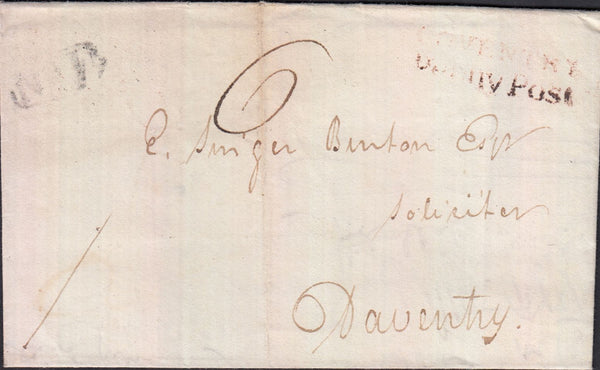 COVENTRY
Penny Post
6
E. Singer Burton Esqr
Soliciter
Daventry.